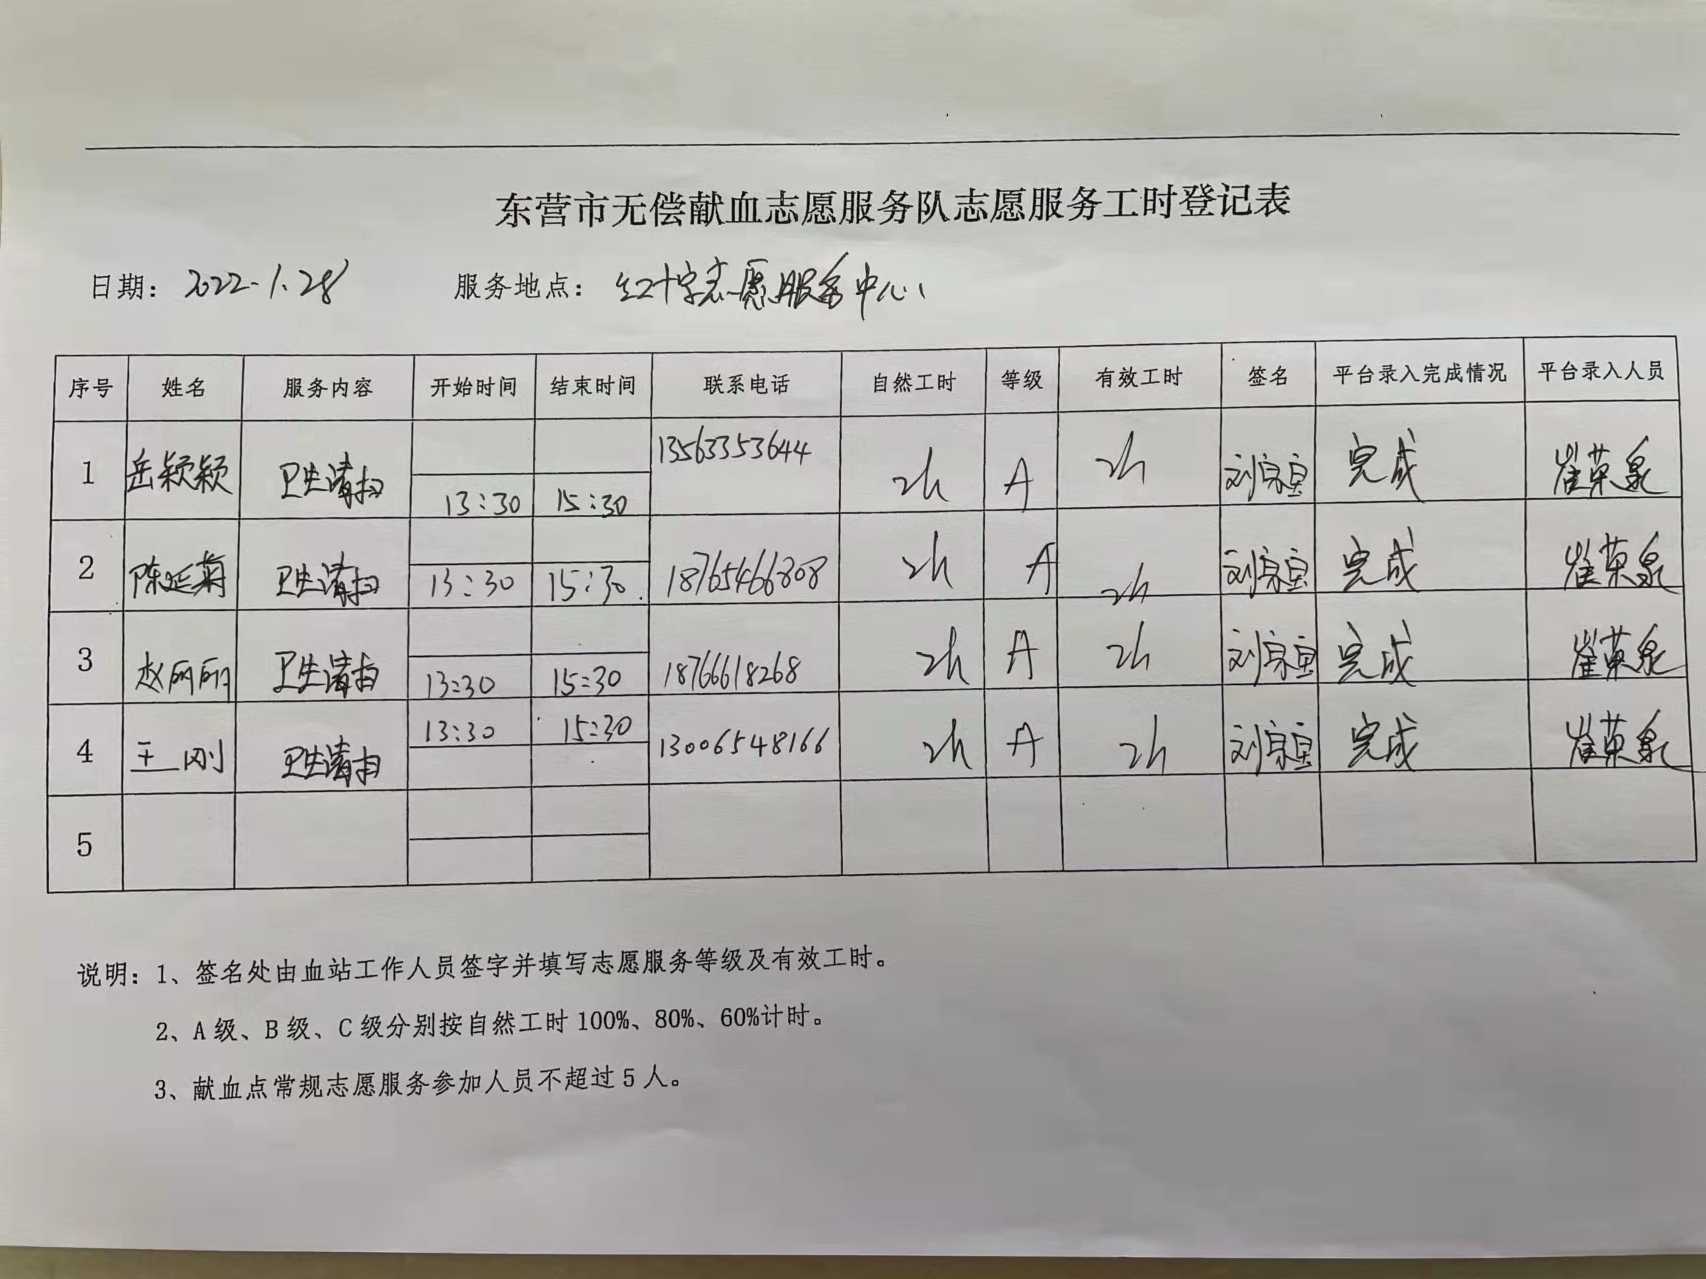 东营市无偿献血志愿服务队志愿服务工时登记表
日期：2022.1.28 服务地点：红十字志愿服务中心
序号 姓名 服务内容 开始时间 结束时间 联系电话 自然工时 等级 有效工时 签名 平台录入完成情况 平台录入人员
1 岳颖颖 卫生清扫 13:30 15:30 13563353644 2h A 2h 刘宗宝 完成 崔英泉
2 陈延菊 卫生清扫 13:30 15:30 18765466808 2h A 2h 刘宗宝 完成 崔英泉
3 赵丽丽 卫生清扫 13:30 15:30 18766618268 2h A 2h 刘宗宝 完成 崔英泉
4 王刚 卫生清扫 13:30 15:30 13006548166 2h A 2h 刘宗宝 完成 崔英泉
5
说明：1、签名处由血站工作人员签字并填写志愿服务等级及有效工时。
2、A级、B级、C级分别按自然工时100%、80%、60%计时。
3、献血点常规志愿服务参加人员不超过5人。